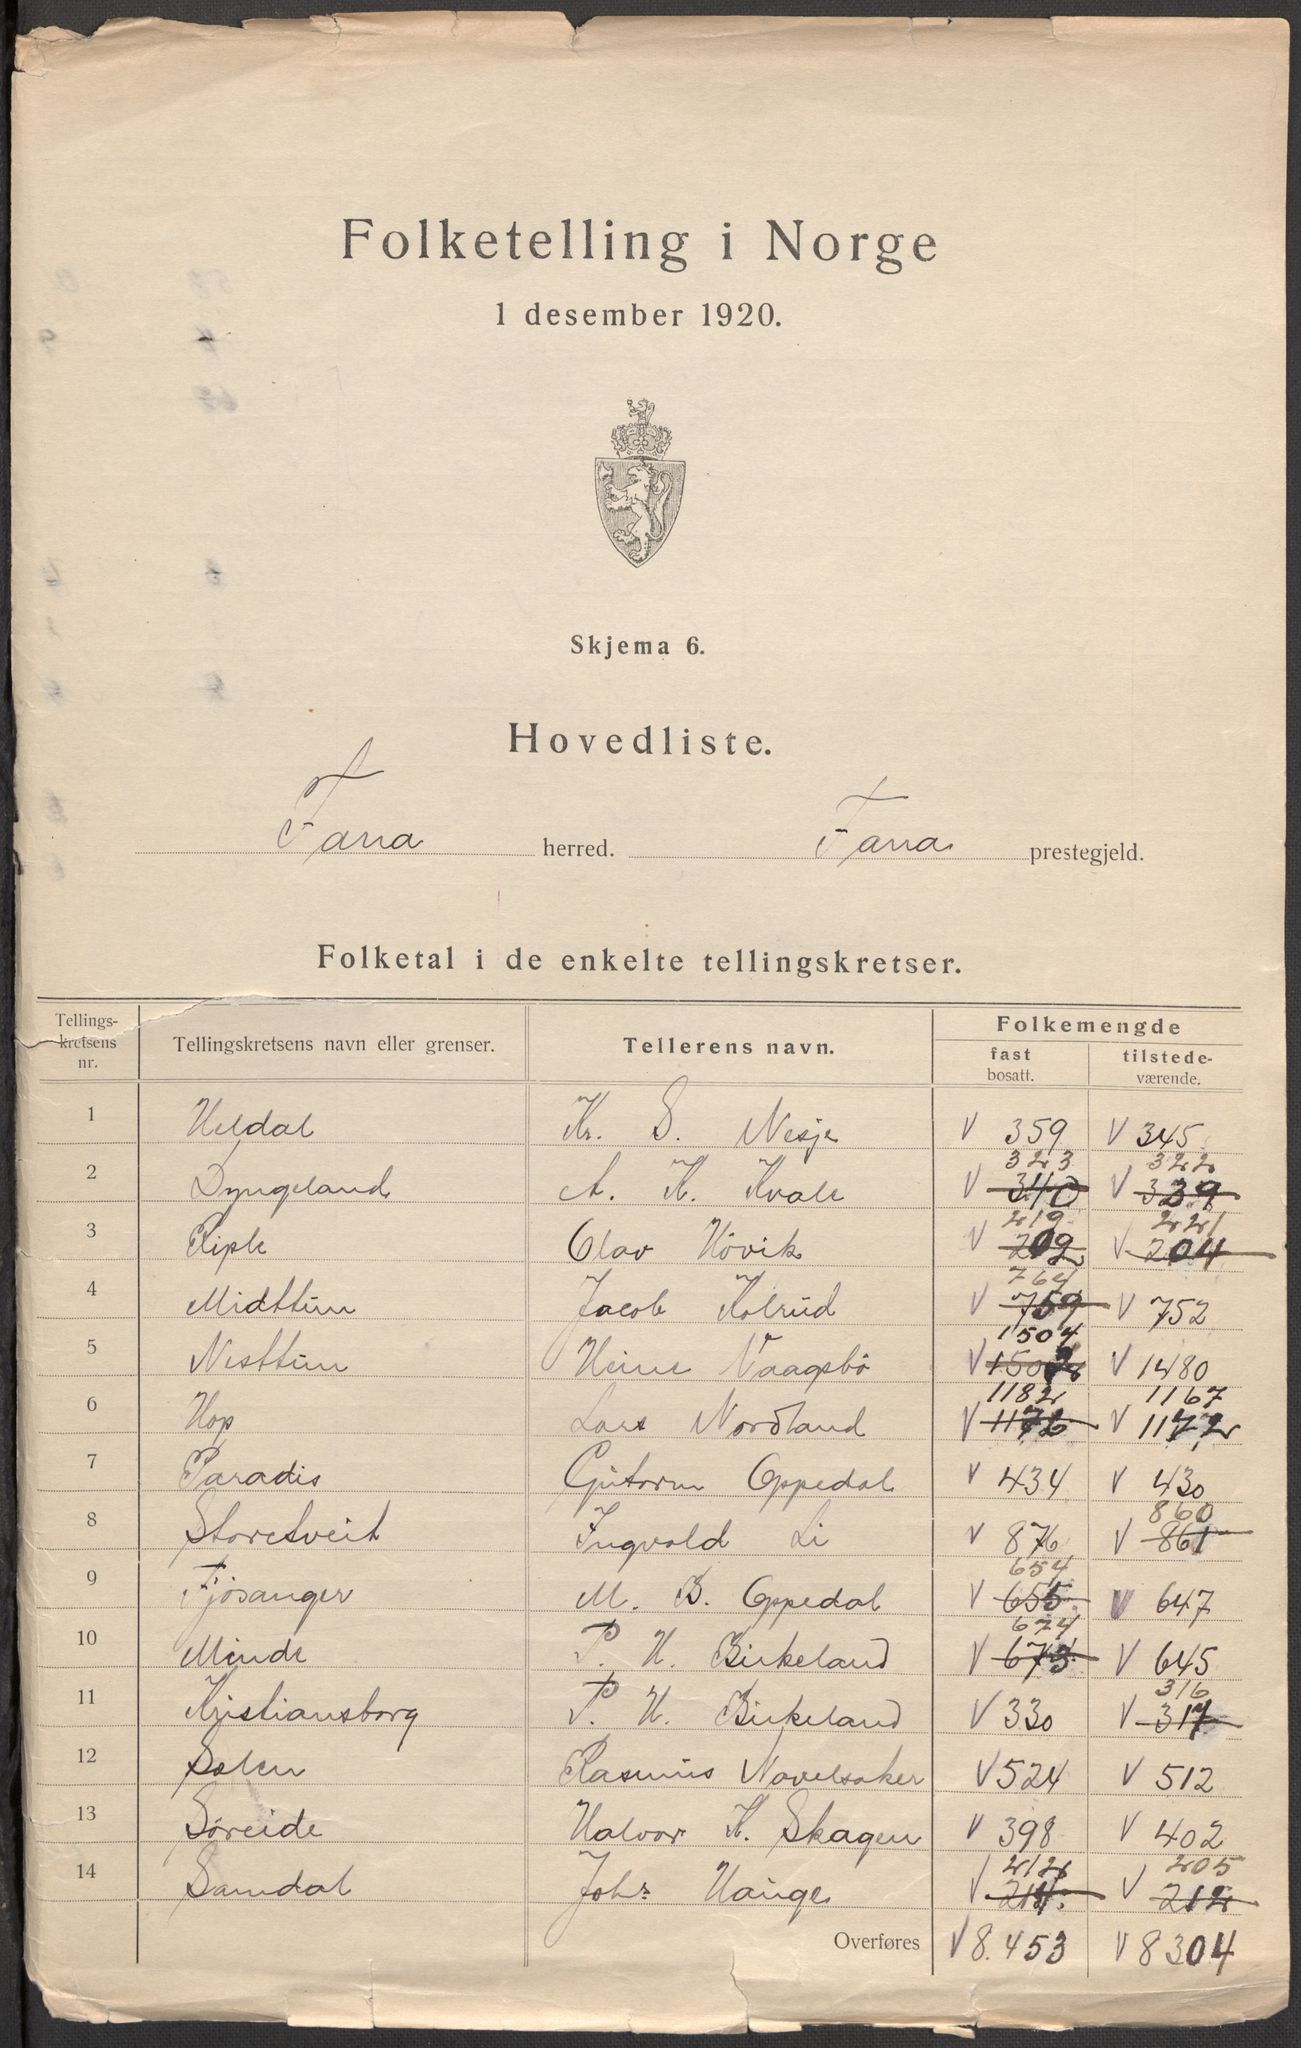 Folketelling i Norge
1 desember 1920.
Skjema 6.
Hovedliste.
Fana herred. Fana prestegjeld.
Folketal i de enkelte tellingskretser.
Tellings-kretsens nr. Tellingskretsens navn eller grenser. Tellerens navn. Folkemengde
fast bosatt. tilstede-værende.
1 Heldal Kr. S. Nesje V 359 V 345
323 322
2 Dyngeland A. K. Kvale V 340 V 339
219 221
3 Riple Olav Hövik V 202 V 204
764
4 Midttun Jacob Kolrud V 759 V 752
1504
5 Nesttun Heine Vaagsbö V 1502 V 1480
1182 1167
6 Hop Lars Nordland V 1176 V 1172
7 Paradis Gutorm Oppedal V 434 V 430
860
8 Storetveit Ingvald Li V 876 V 861
654
9 Fjösanger M. B. Oppedal V 655 V 647
674
10 Minde P. H. Birkeland V 673 V 645
316
11 Kristiansborg P. H. Birkeland V 330 V 317
12 Sælen Rasmus Navelsaker V 524 V 512
13 Søreide Halvor K. Skagen V 398 V 402
212 205
14 Samdal Johs Hauge V 211 V 212
Overføres V 8.453 V 8304